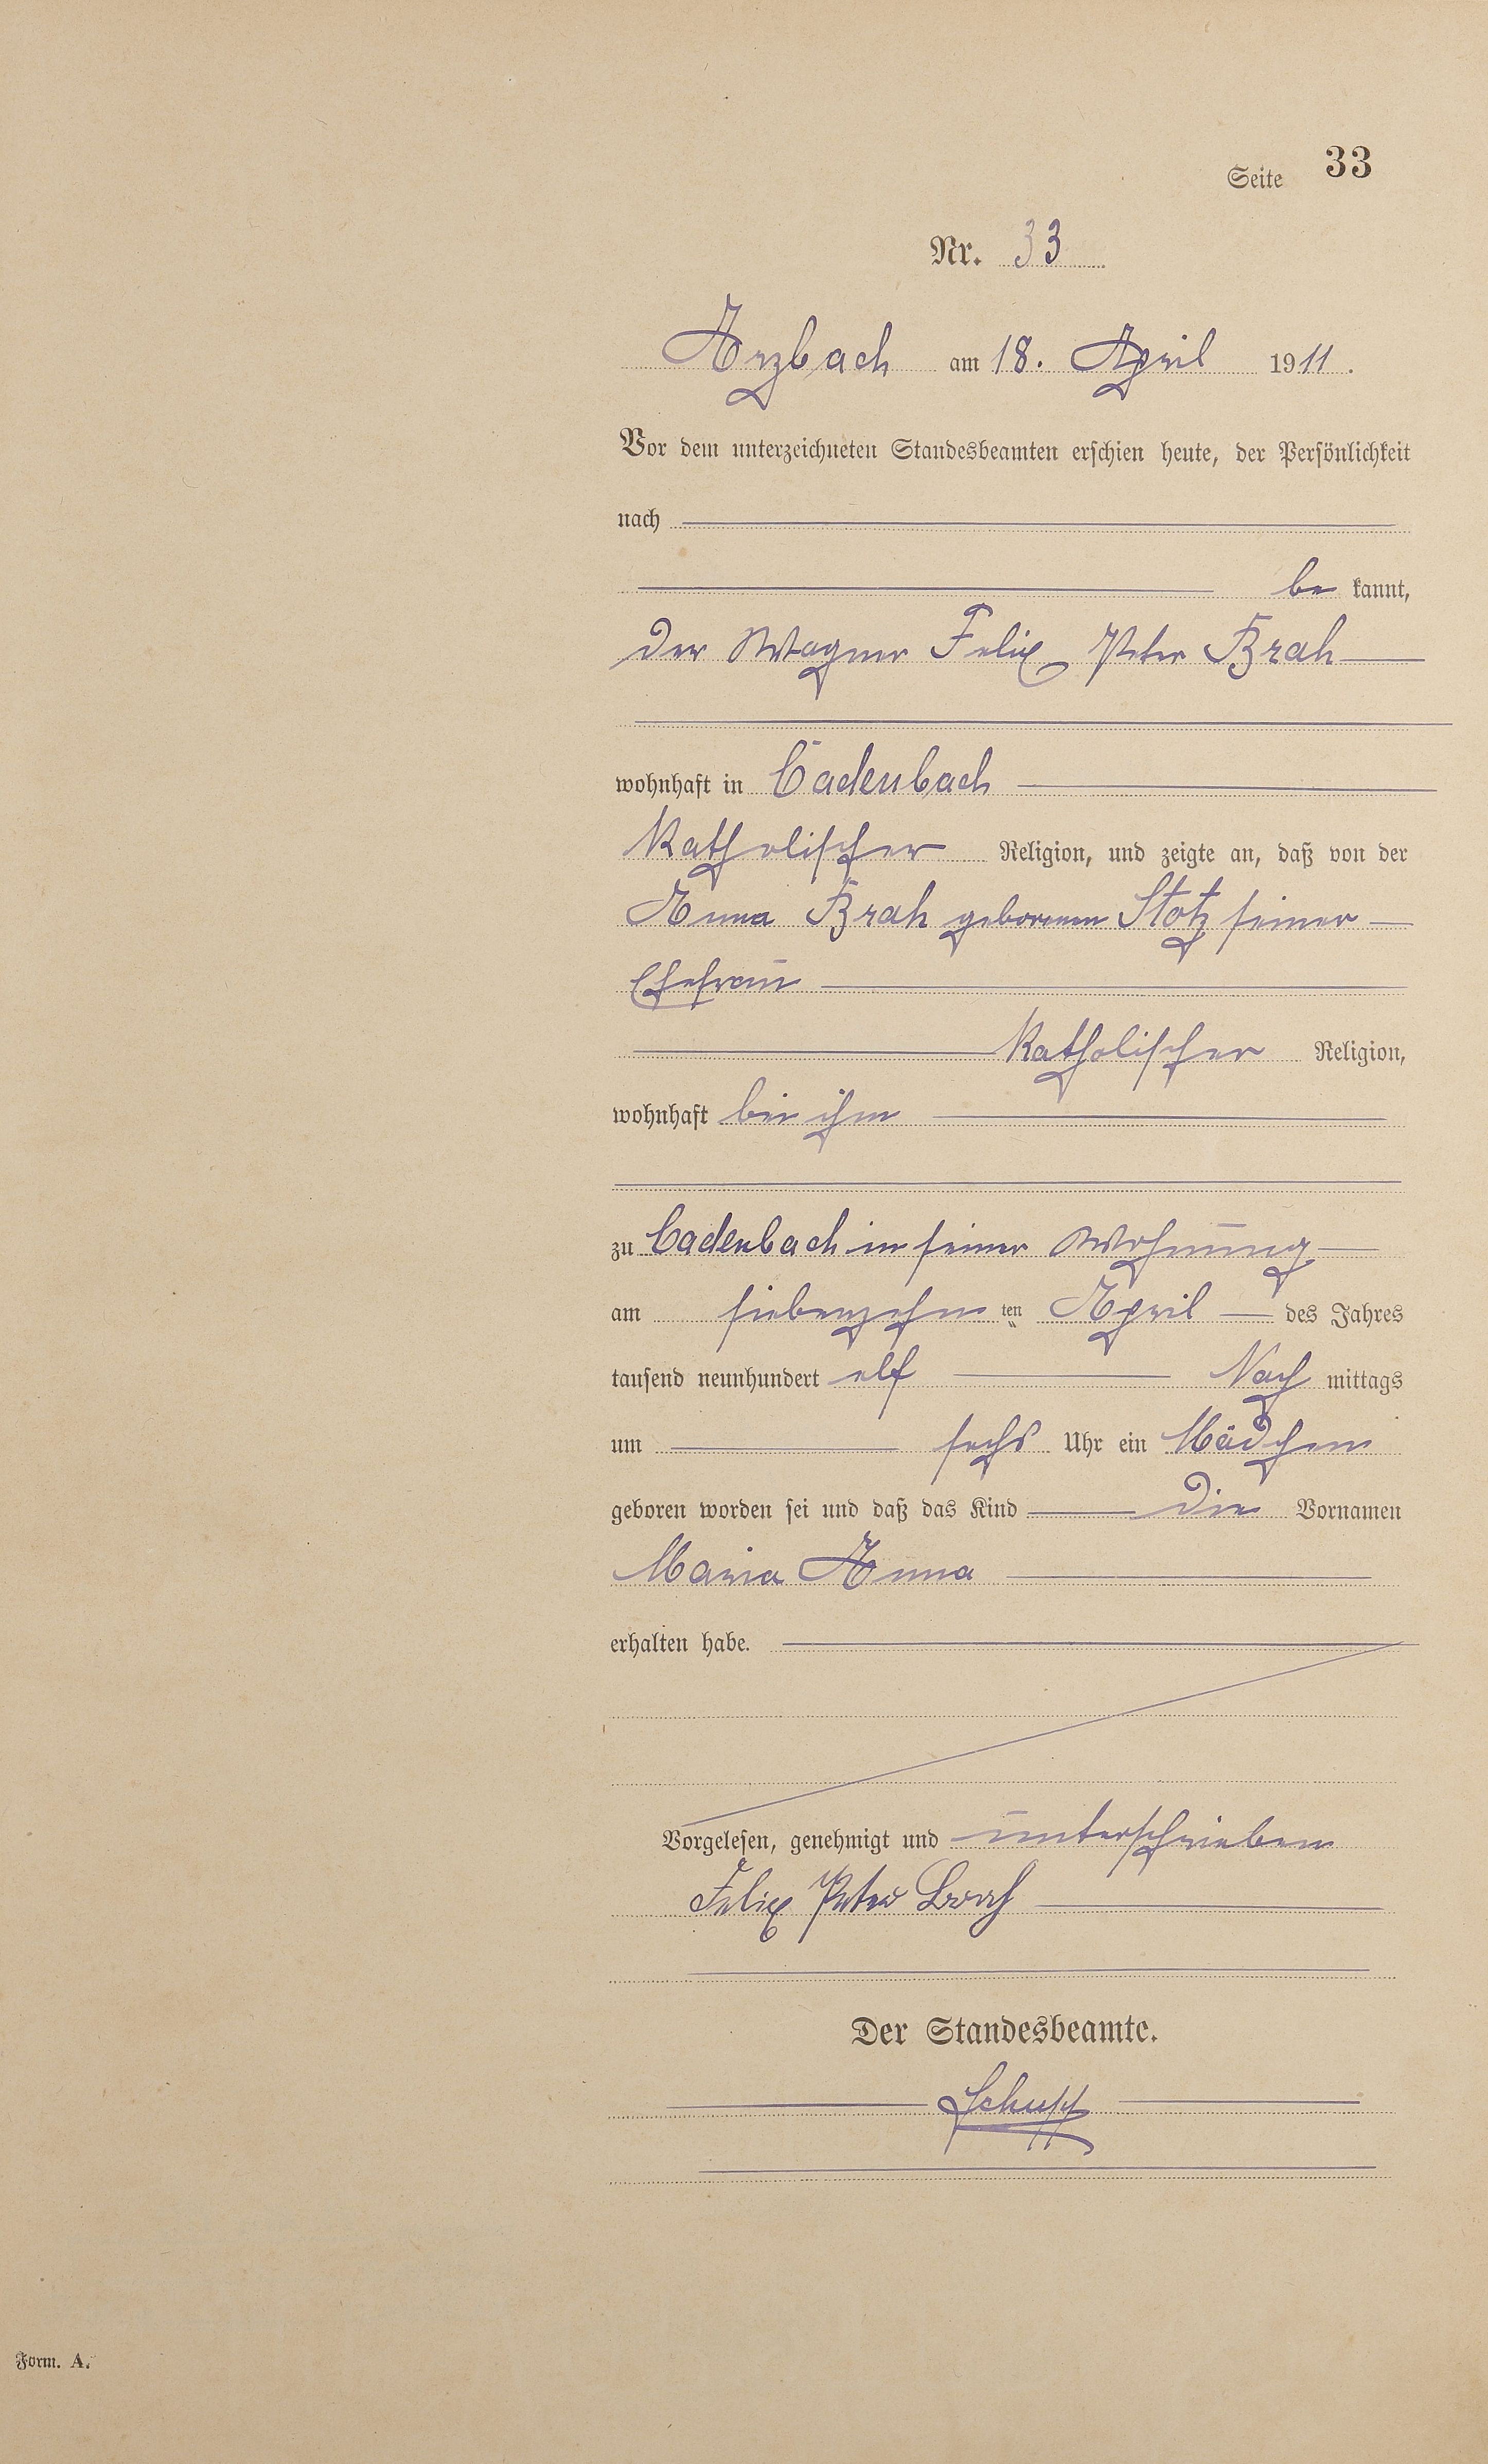 Seite 33
Nr. 33
Arzbach am 18. April 1911.
Vor dem unterzeichneten Standesbeamten erschien heute, der Persönlichkeit
nach
be kannt,
der Wagner Felix Peter Brah
wohnhaft in Cadenbach
katholischer Religion, und zeigte an, daß von der
Anna Brah geborenen Stotz seiner
Ehefrau
katholischer Religion,
wohnhaft bei ihm
zu Cadenbach in seiner Wohnung
am siebenzehn ten April des Jahres
tausend neunhundert elf Nach mittags
um sechs Uhr ein Mädchen
geboren worden sei und daß das Kind die Vornamen
Maria Anna
erhalten habe.
Vorgelesen, genehmigt und unterschrieben
Felix Peter Brah
Der Standesbeamte.
Schupp
Form. A.